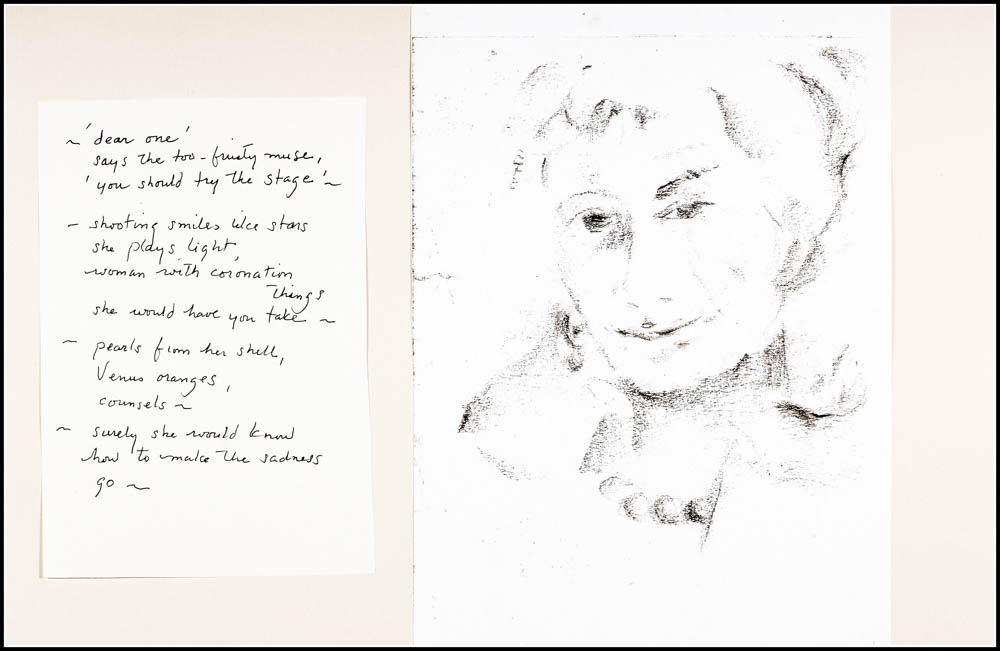 ~ 'dear one'
says the too-fruity muse,
'you should try the stage' ~
~ shooting smiles like stars
she plays light,
woman with coronation
things
she would have you take ~
~ pearls from her shell,
Venus oranges,
counsels ~
~ surely she would know
how to make the sadness
go ~